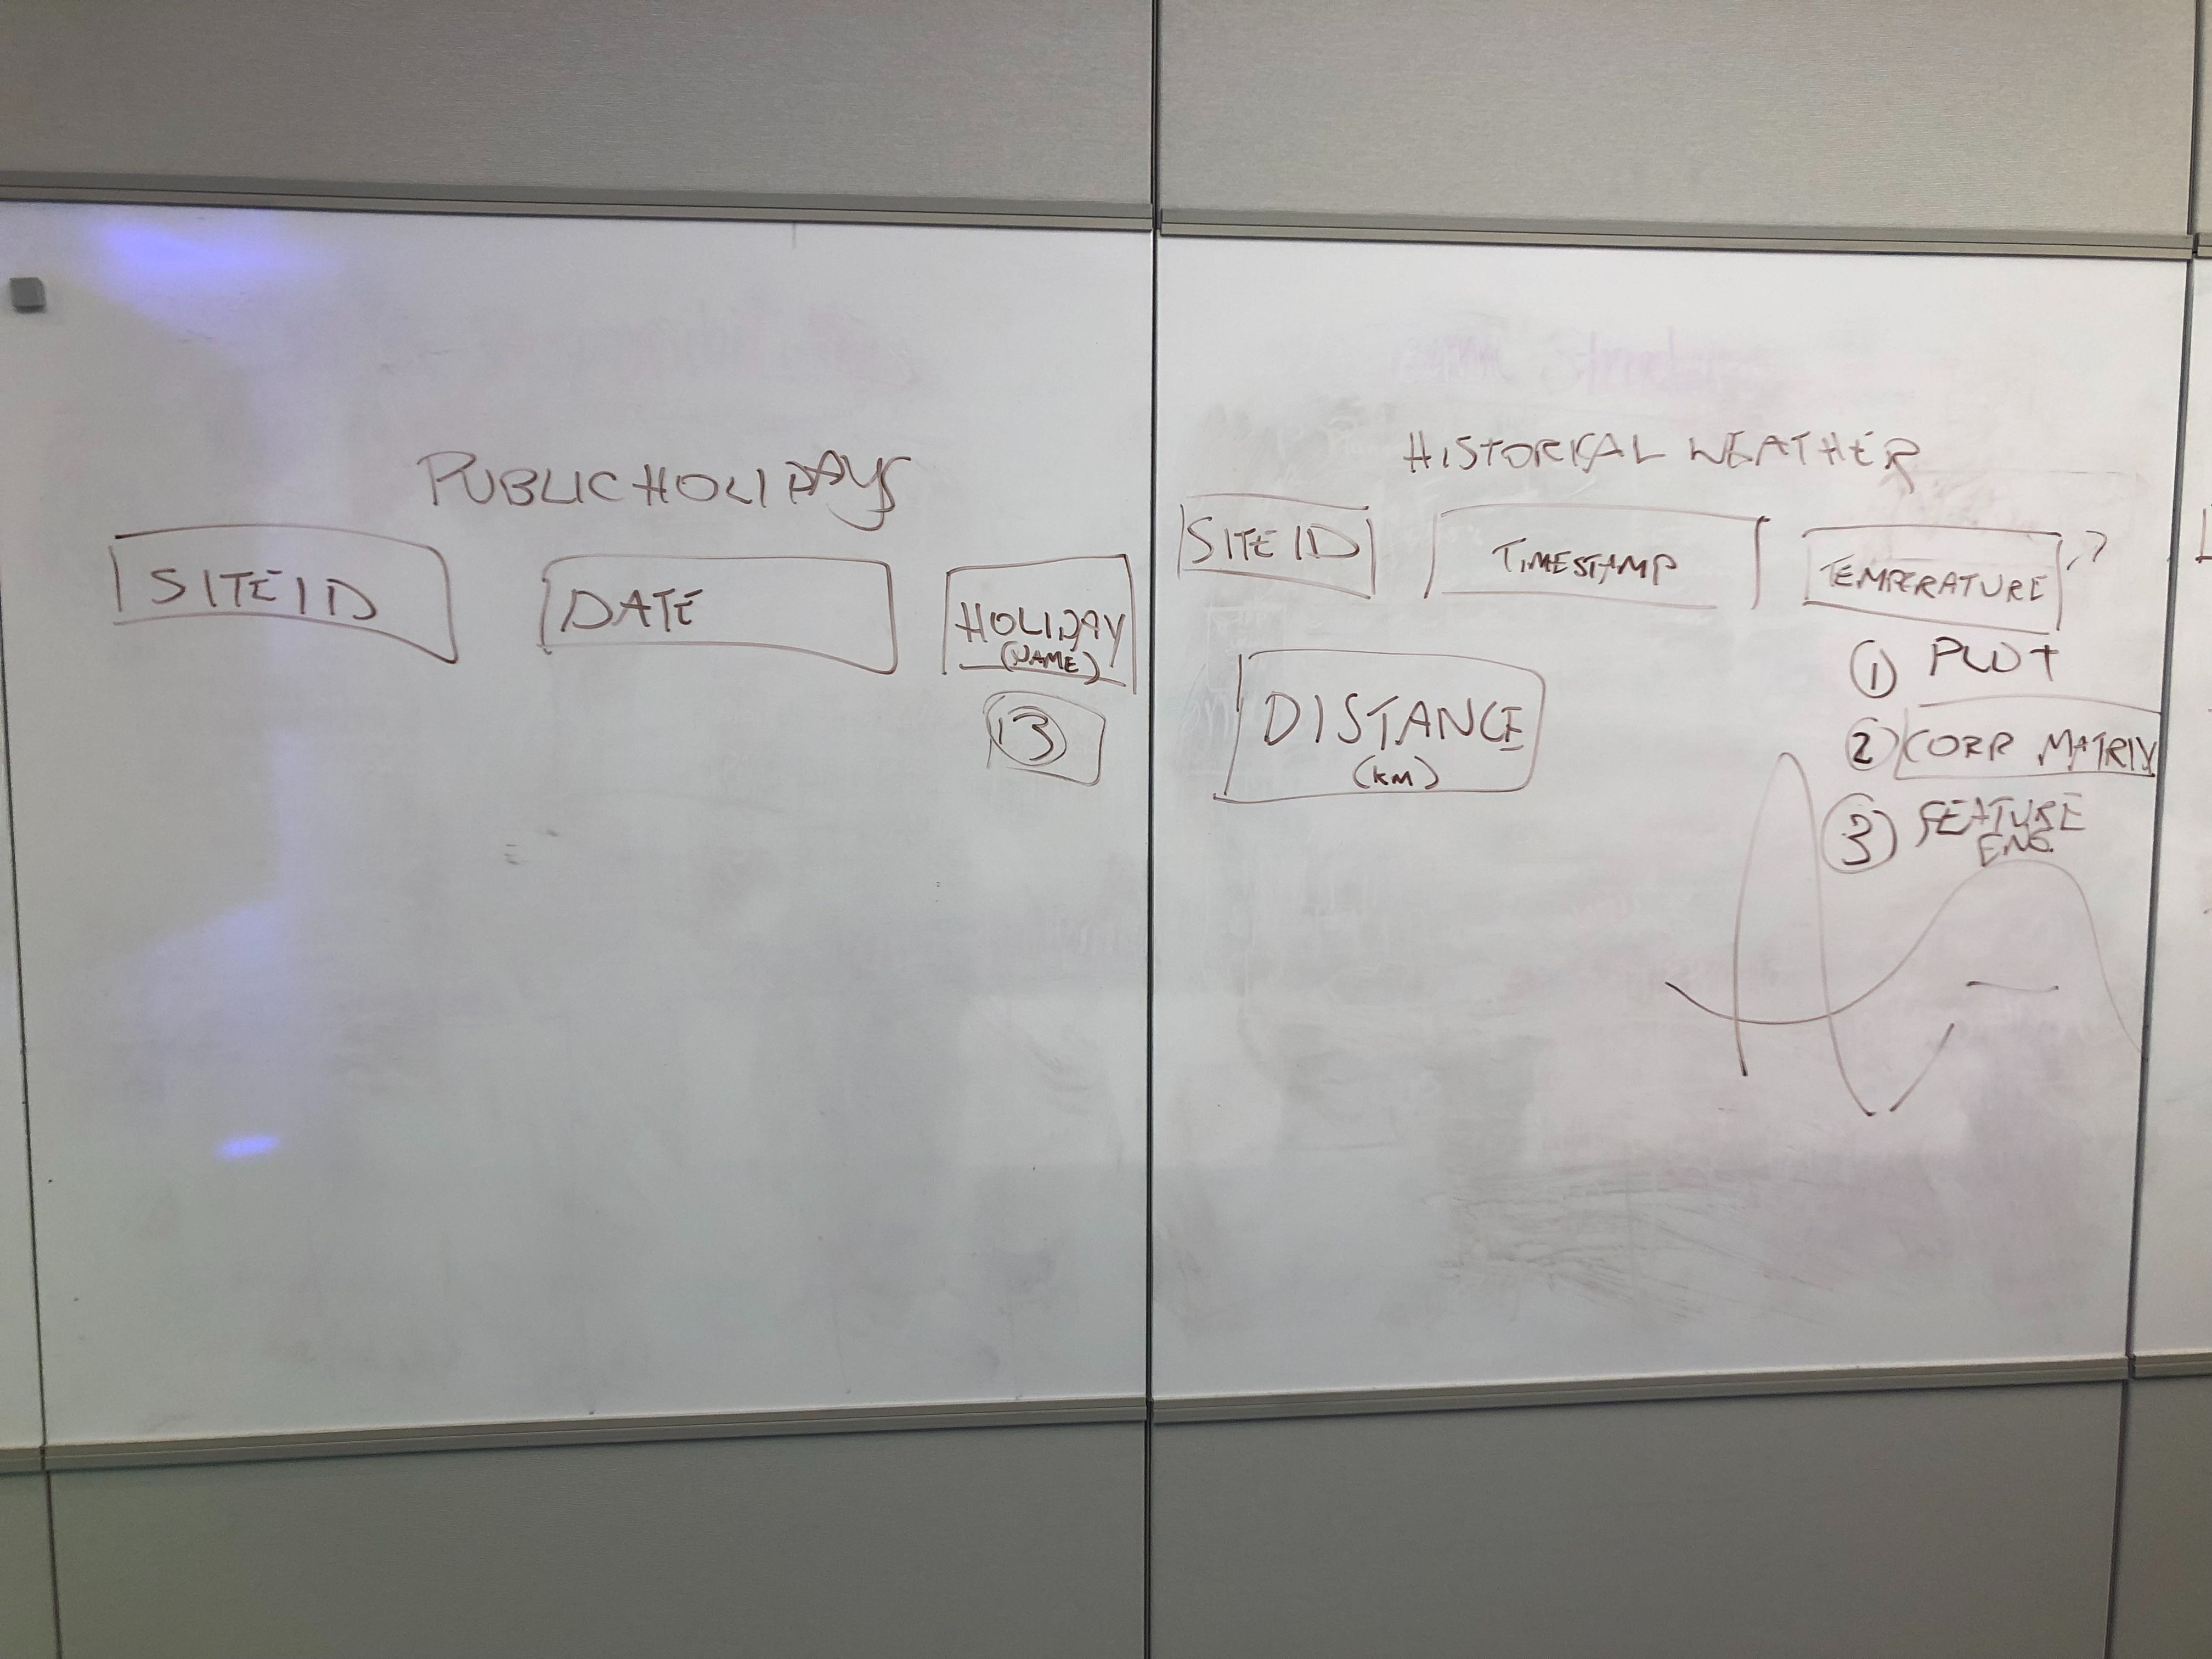 PUBLIC HOLIDAYS
SITE ID
DATE
HOLIDAY
(NAME)
13
HISTORICAL WEATHER
SITE ID
TIMESTAMP
TEMPERATURE
?
DISTANCE
(KM)
① PLOT
② CORR MATRIX
③ FEATURE
ENG.